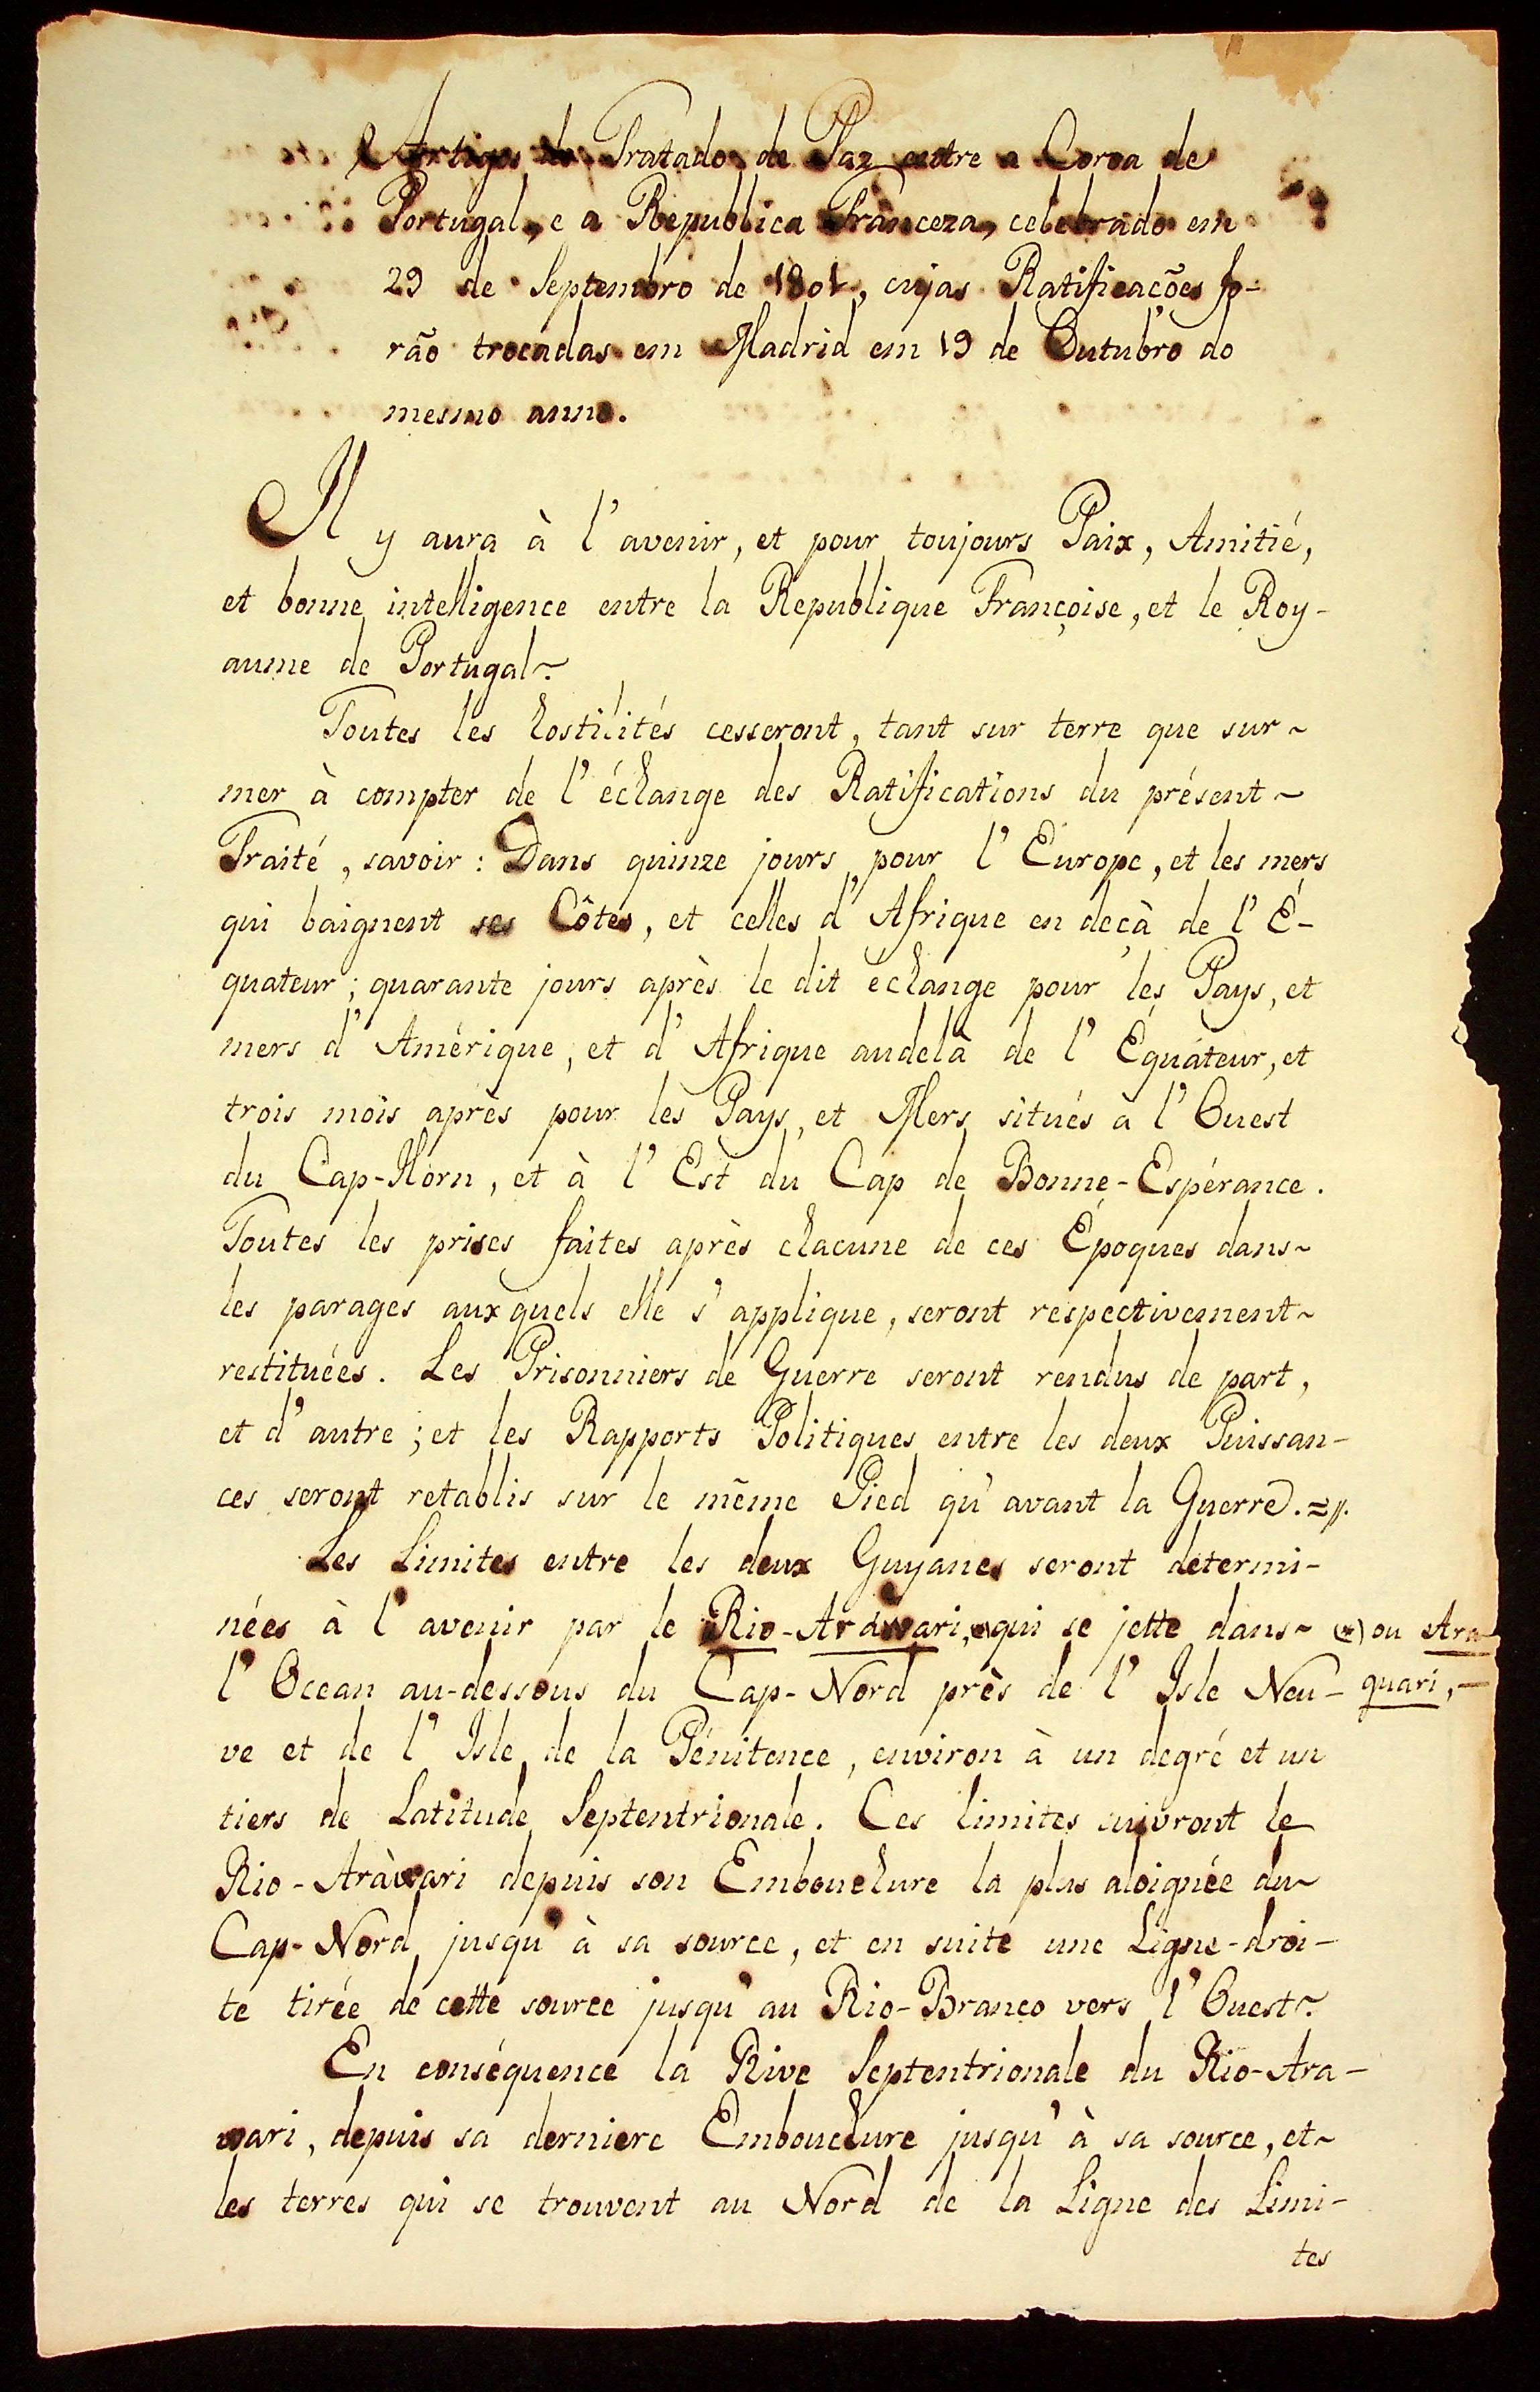 Artigos do Tratado de Paz entre a Coroa de
Portugal, e a Republica Franceza, celebrado em
29 de Septembro de 1801, cujas Ratificações fo-
rão trocadas em Madrid em 19 de Outubro do
mesmo anno.
Il y aura à l'avenir, et pour toujours Paix, Amitié,
et bonne intelligence entre la Republique Françoise, et le Roy-
aume de Portugal.
Toutes les hostilités cesseront, tant sur terre que sur
mer à compter de l'échange des Ratifications du présent
Traité, savoir: Dans quinze jours pour l'Europe, et les mers
qui baignent ses Côtes, et celles d'Afrique en deçà de l'É-
quateur; quarante jours après le dit échange pour les Pays, et
mers d'Amérique, et d'Afrique audelà de l'Équateur, et
trois mois après pour les Pays, et Mers situés à l'Ouest
du Cap-Horn, et à l'Est du Cap de Bonne-Espérance.
Toutes les prises faites après chacune de ces Époques dans
les parages aux quels elle s'applique, seront respectivement
restituées. Les Prisonniers de Guerre seront rendus de part,
et d'autre; et les Rapports Politiques entre les deux Puissan-
ces seront retablis sur le même Pied qu'avant la Guerre.
Les Limites entre les deux Guyanes seront détermi-
nées à l'avenir par le Rio-Arawari, (*) qui se jette dans
(*) ou Ara
l'Ocean au-dessous du Cap-Nord près de l'Isle Neu-
quari,
ve et de l'Isle de la Pénitence, environ à un degré et un
tiers de Latitude Septentrionale. Ces limites suivront le
Rio-Aràwari depuis son Embouchure la plus aloignée du
Cap-Nord jusqu'à sa source, et en suite une Ligne-droi-
te tirée de cette source jusqu'au Rio-Branco vers l'Ouest.
En conséquence la Rive Septentrionale du Rio-Ara-
wari, depuis sa derniere Embouchure jusqu'à sa source, et
les terres qui se trouvent au Nord de la Ligne des Limi-
tes